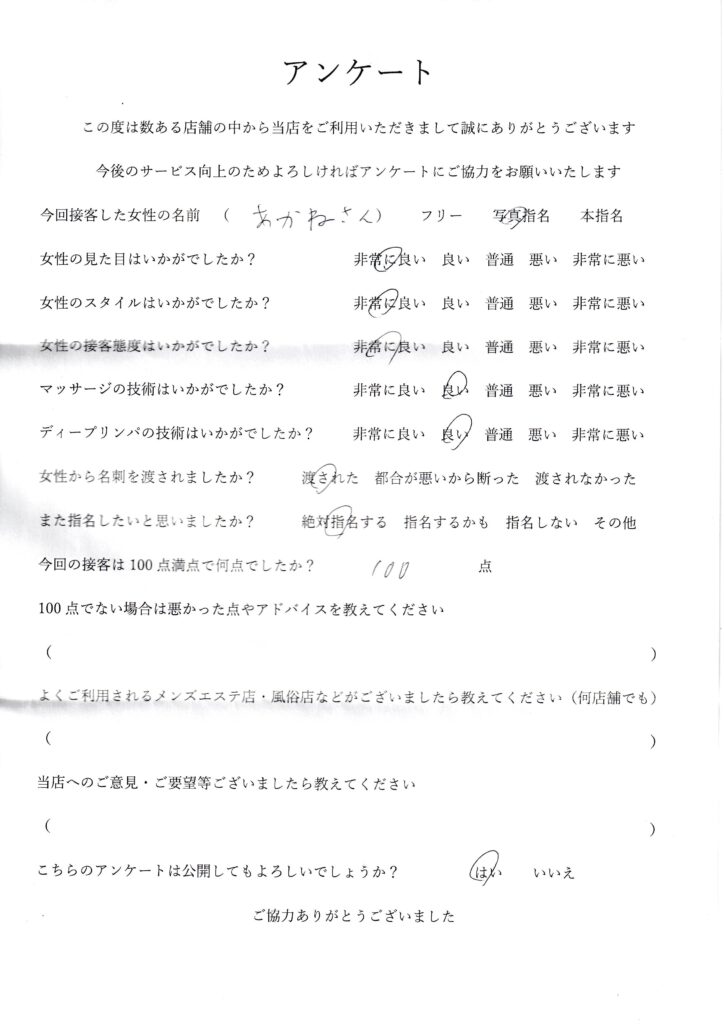 アンケート
この度は数ある店舗の中から当店をご利用いただきまして誠にありがとうございます
今後のサービス向上のためよろしければアンケートにご協力をお願いいたします
今回接客した女性の名前 ( あかねさん ) フリー 写真指名 本指名
女性の見た目はいかがでしたか? 非常に良い 良い 普通 悪い 非常に悪い
女性のスタイルはいかがでしたか? 非常に良い 良い 普通 悪い 非常に悪い
女性の接客態度はいかがでしたか? 非常に良い 良い 普通 悪い 非常に悪い
マッサージの技術はいかがでしたか? 非常に良い 良い 普通 悪い 非常に悪い
ディープリンパの技術はいかがでしたか? 非常に良い 良い 普通 悪い 非常に悪い
女性から名刺を渡されましたか? 渡された 都合が悪いから断った 渡されなかった
また指名したいと思いましたか? 絶対指名する 指名するかも 指名しない その他
今回の接客は100点満点で何点でしたか? 100 点
100点でない場合は悪かった点やアドバイスを教えてください
( )
よくご利用されるメンズエステ店・風俗店などがございましたら教えてください(何店舗でも)
( )
当店へのご意見・ご要望等ございましたら教えてください
( )
こちらのアンケートは公開してもよろしいでしょうか? はい いいえ
ご協力ありがとうございました